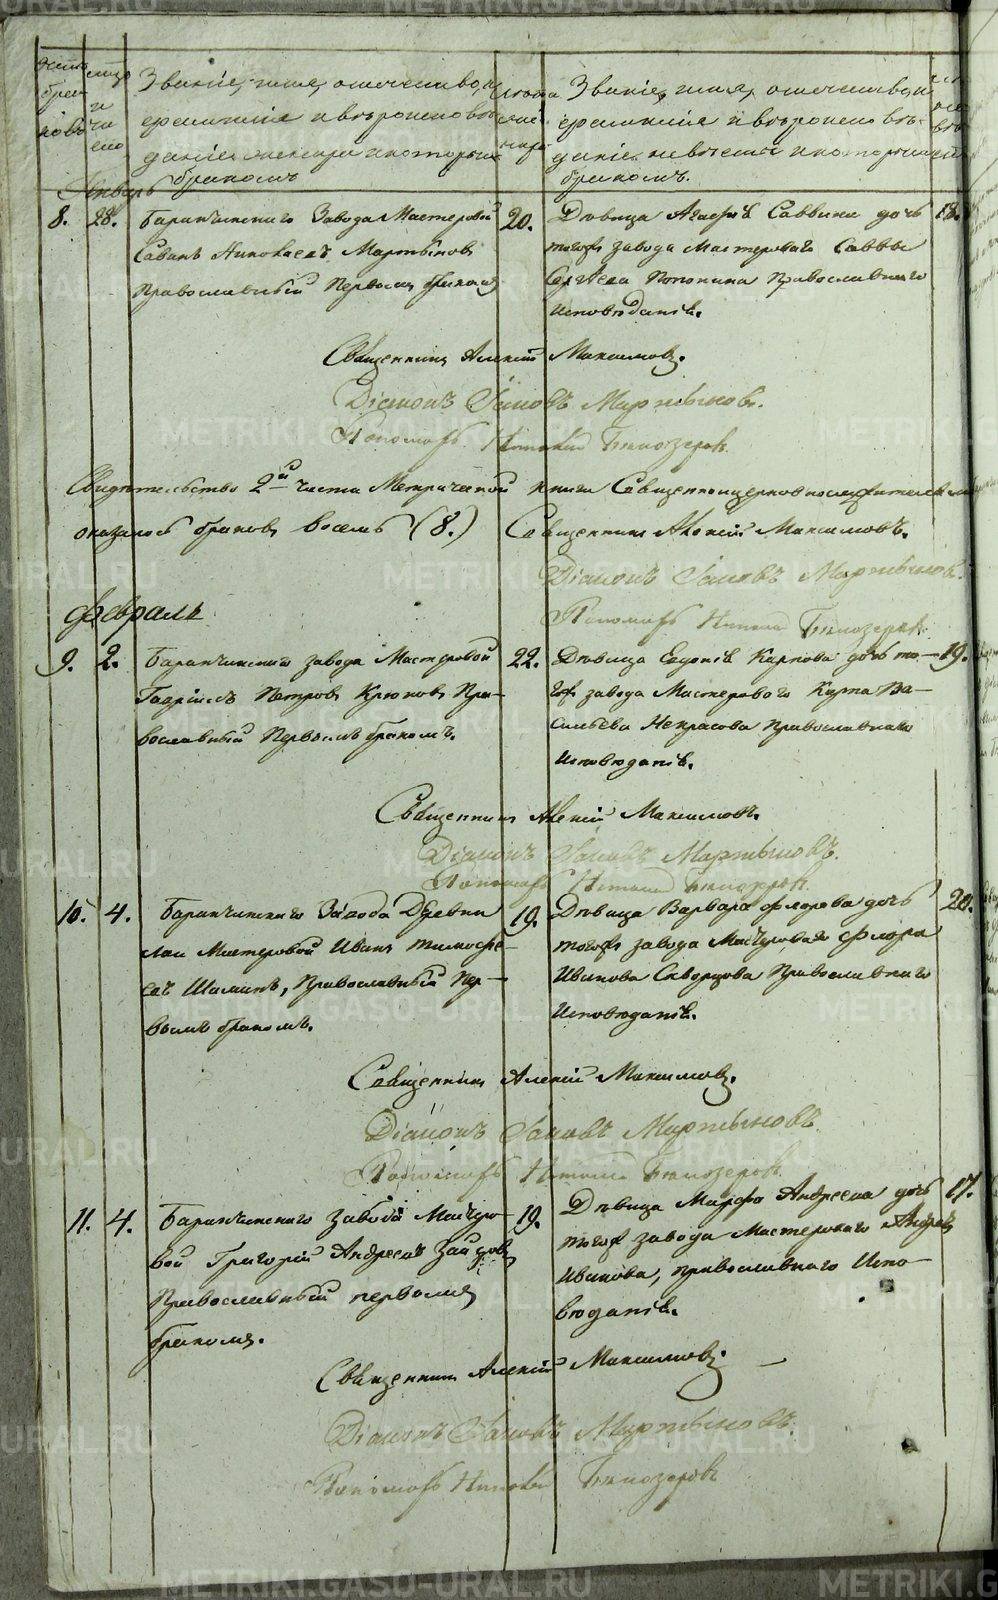 Званіе, имя, отечество и
фамилія и вѣроисповѣ
даніе жениха и которымъ
бракомъ
лѣта
Званіе, имя, отечество и
фамилія и вѣроисповѣ
даніе невѣсты и которымъ
бракомъ.
Январь
8. 28. Баранчинскаго Завода Мастеровой
Николаевъ Мартыновъ
Православный Первымъ бракомъ
20.
Дѣвица Агафія Саввина дочь
тогожъ завода Мастероваго Саввы
Сергѣева Православнаго
Исповѣданія.
18.
Священникъ Алексій Максимовъ.
Діаконъ Іаковъ Мартыновъ.
Пономарь Бѣлозеровъ
Свидѣтельство 2й части Метрической книги Священноцерковнослужителями
оказалось браковъ восемь (8.) Священникъ Алексій Максимовъ.
Діаконъ Іаковъ Мартыновъ.
Пономарь Бѣлозеровъ
Февраль
9. 2. Баранчинскаго завода Мастеровой
Гавріилъ Петровъ Крюковъ Пра-
вославный Первымъ бракомъ.
22.
Дѣвица Евдокія Карпова дочь то-
гожъ завода Мастероваго Карпа Ва-
сильева Некрасова Православнаго
Исповѣданія.
19.
Священникъ Алексій Максимовъ.
Діаконъ Іаковъ Мартыновъ.
Пономарь Бѣлозеровъ
10. 4. Баранчинскаго Завода Деревни
Мастеровой Иванъ Тимофе-
евъ Шаминъ, Православный Пер-
вымъ бракомъ.
19.
Дѣвица Варвара Флорова дочь
тогожъ завода Мастероваго Флора
Иванова Скворцова Православнаго
Исповѣданія.
20.
Священникъ Алексій Максимовъ.
Діаконъ Іаковъ Мартыновъ.
Пономарь Бѣлозеровъ
11. 4. Баранчинскаго завода Мастеро-
вой Григорій Андреевъ
Православный первымъ
бракомъ.
19.
Дѣвица Марфа Андреева дочь
тогожъ завода Мастероваго Андрея
Иванова, православнаго Испо-
вѣданія.
17.
Священникъ Алексій Максимовъ.
Діаконъ Іаковъ Мартыновъ.
Пономарь Бѣлозеровъ
METRIKI.GASO-URAL.RU